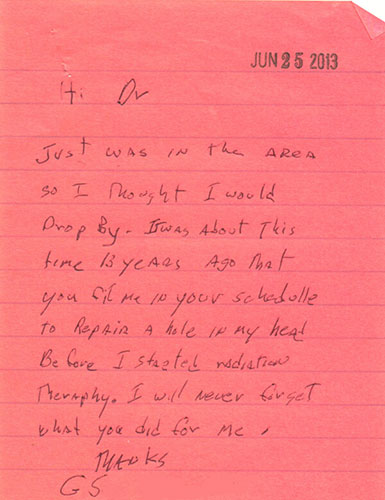 JUN 25 2013
Hi Dr
Just was in the area
so I Thought I would
Drop By. It was About This
time 13 years Ago That
you fit me in your schedulle
to Repair A hole in my head
Before I started radiation
Theraphy. I will never forget
what you did for me.
THANKS
GS